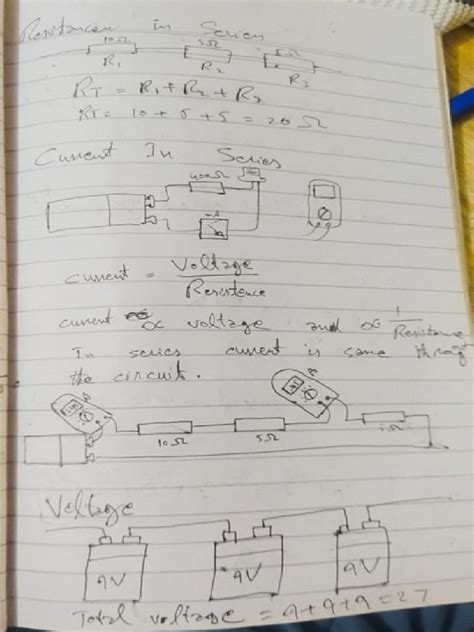 Resistances in Series
10Ω 5Ω 5Ω
R1 R2 R3
RT = R1 + R2 + R3
RT = 10 + 5 + 5 = 20 Ω
Current In Series
400Ω
mA
Current = Voltage / Resistence
current ∝ voltage and ∝ 1 / Resistance
In series current is same throug
the circuit.
A A
10Ω 5Ω 5Ω
Voltage
9V 9V 9V
Total voltage = 9+9+9=27